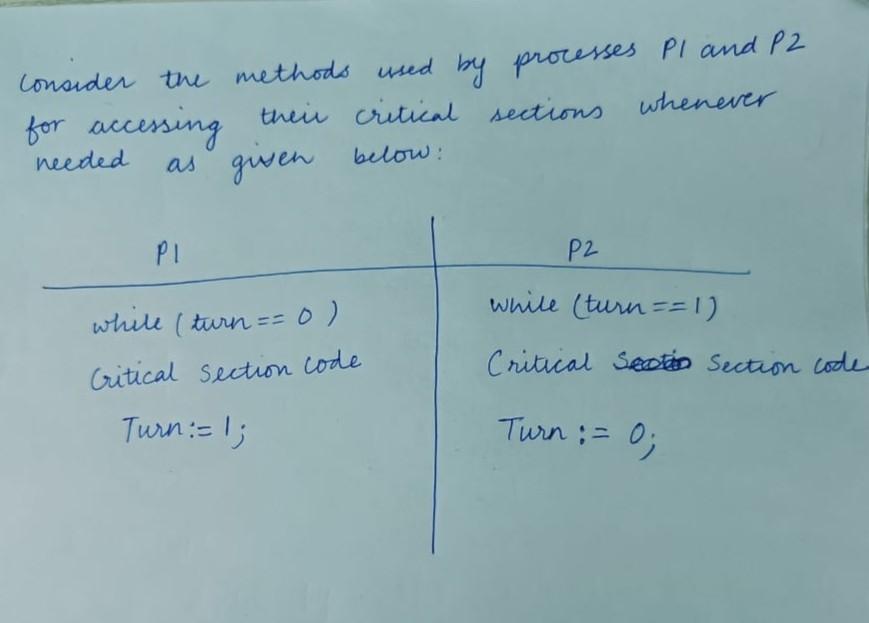 Consider the methods used by processes P1 and P2
for accessing their critical sections whenever
needed as given below:
P1
P2
while (turn == 0)
while (turn == 1)
Critical Section Code
Critical Section code
Turn := 1;
Turn := 0;